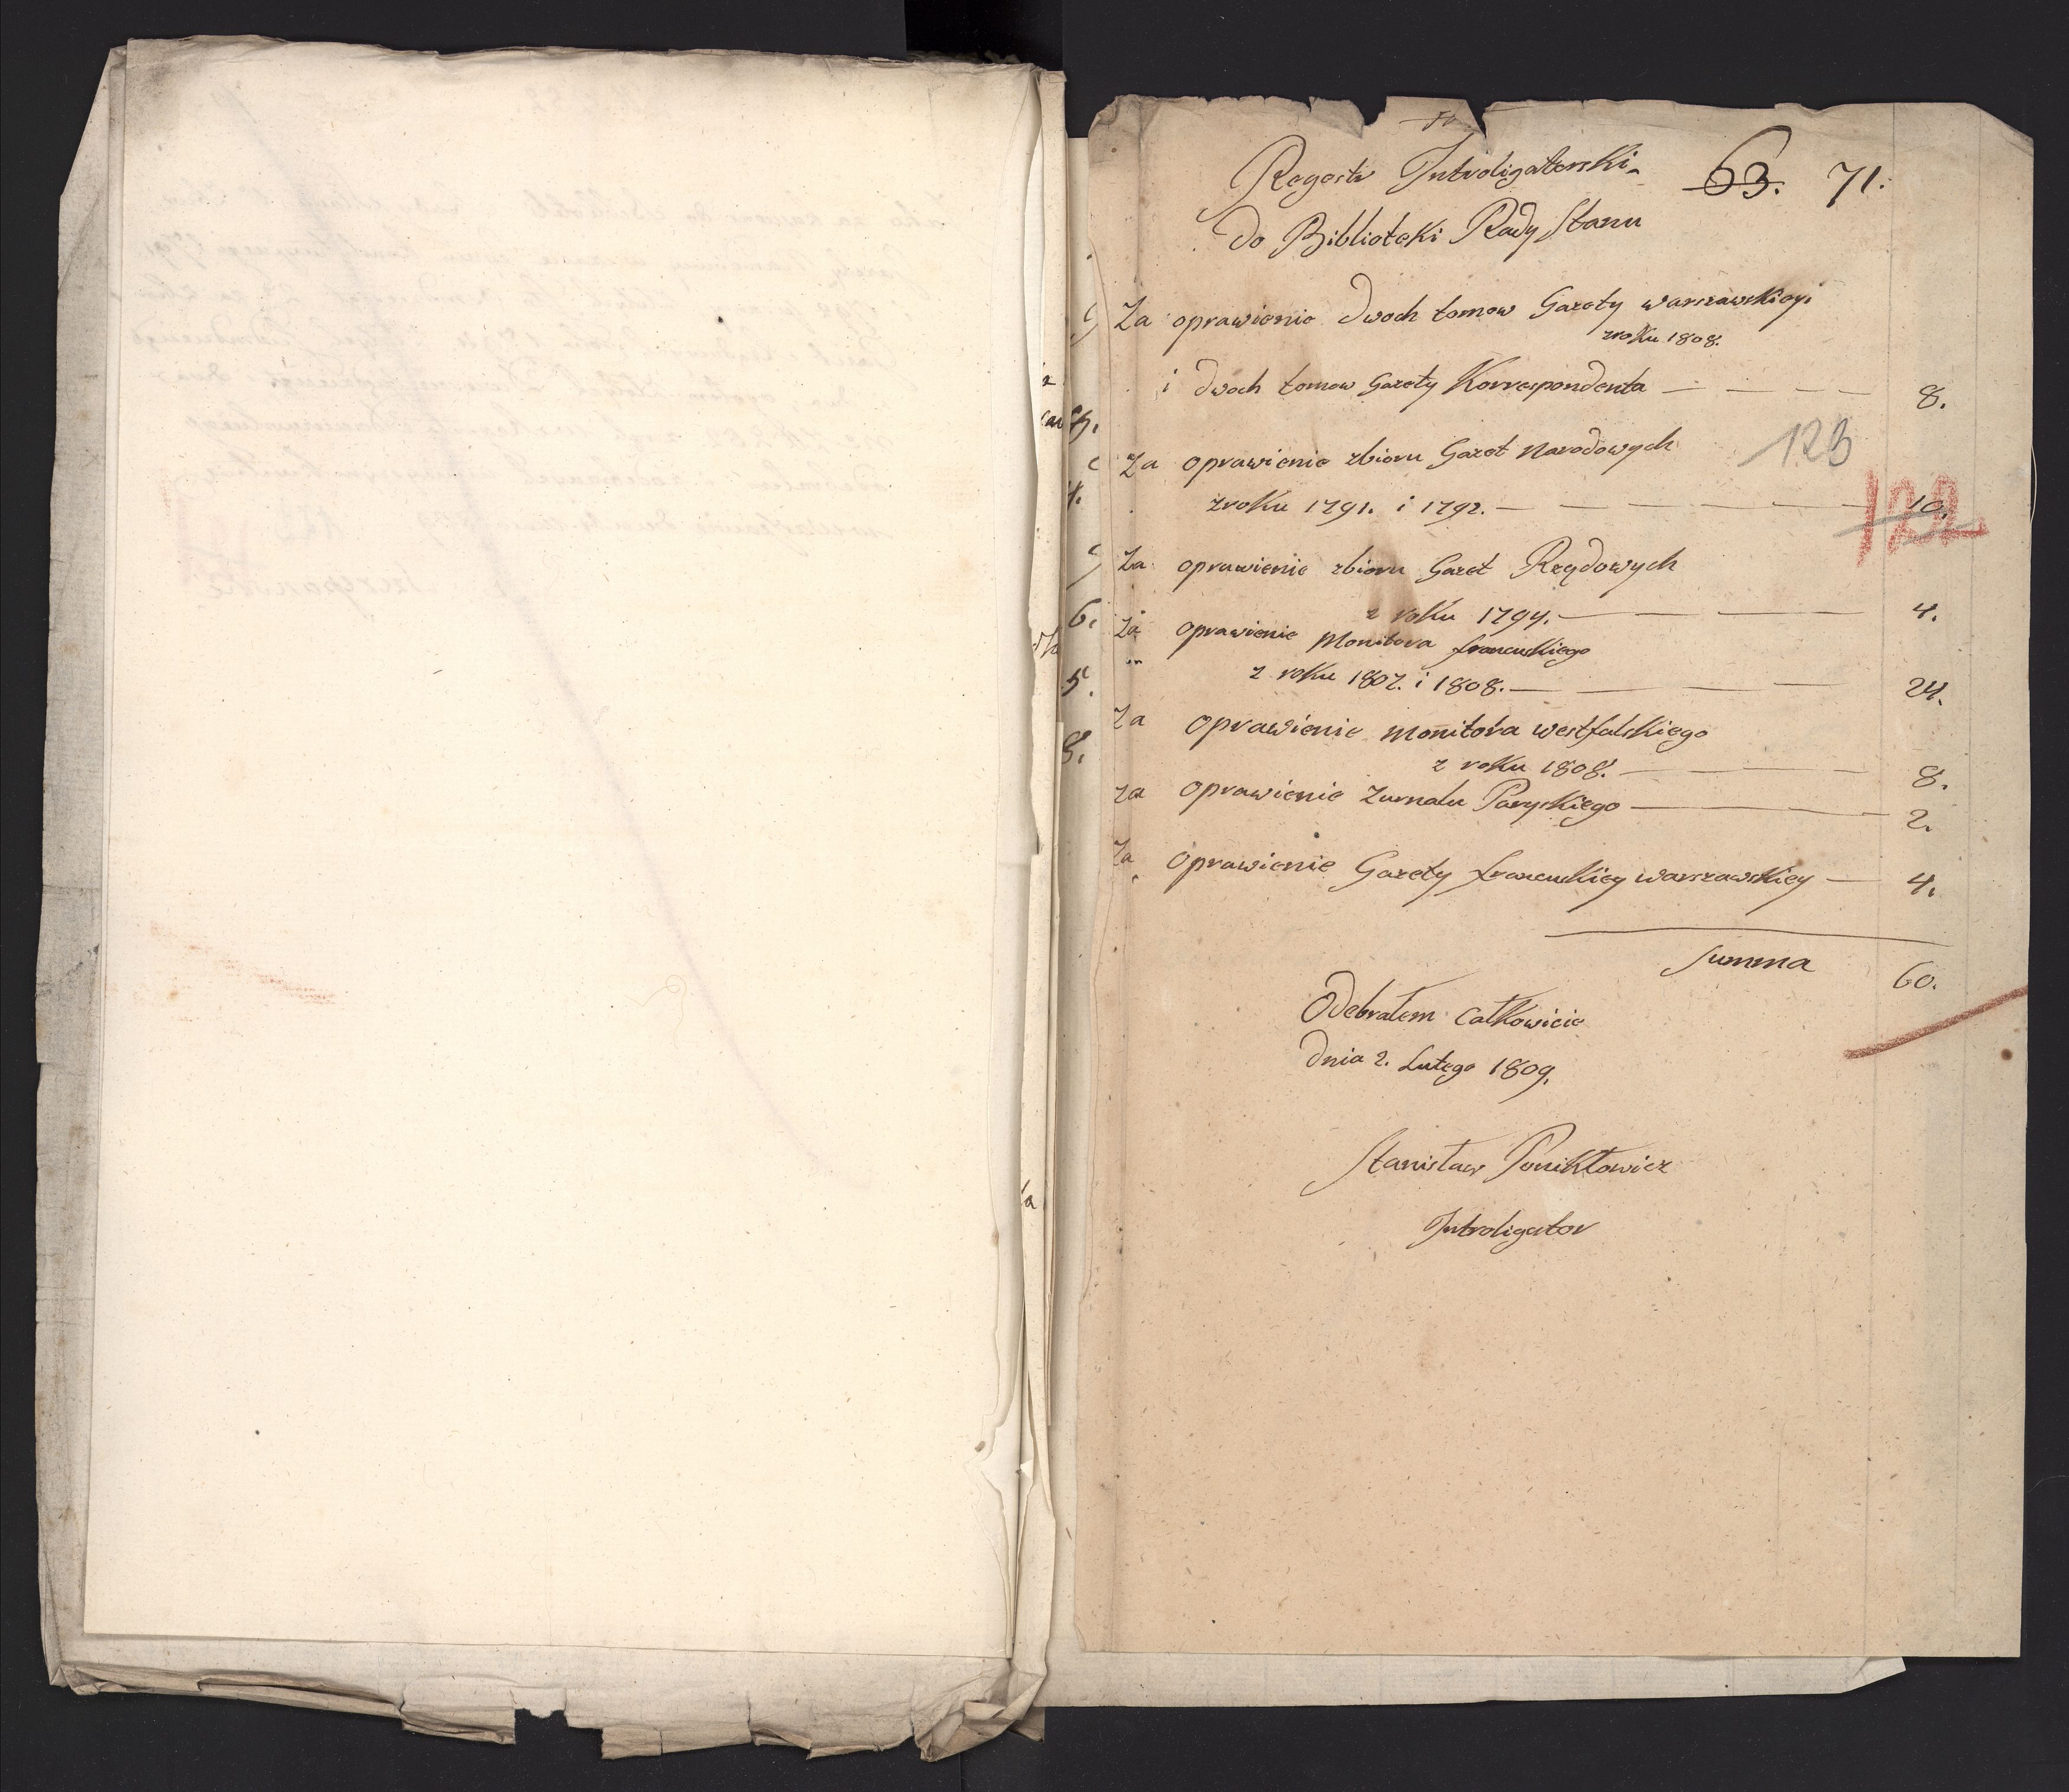 Regestr Introligatorski
63. 71.
do Biblioteki Rady Stanu
Za oprawienie dwoch tomow Gazety warszawskiey
zroku 1808.
i dwoch tomow Gazety Korrespondenta — — — — 8.
123
Za oprawienie zbioru Gazet Narodowych
zroku 1791. i 1792. — — — — — 10.
122
Za oprawienie zbioru Gazet Rządowych
z roku 1794. — — — — 4.
Za oprawienie Monitora francuskiego
z roku 1807. i 1808. — — — — 24.
Za oprawienie monitora westfalskiego
z roku 1808. — — — 8.
za oprawienie Żurnalu Paryskiego — — — 2.
Za oprawienie Gazety francuskiey warszawskiey — 4.
Summa 60.
Odebrałem całkowicie
dnia 2. Lutego 1809.
Stanisław Poniktowicz
Introligator